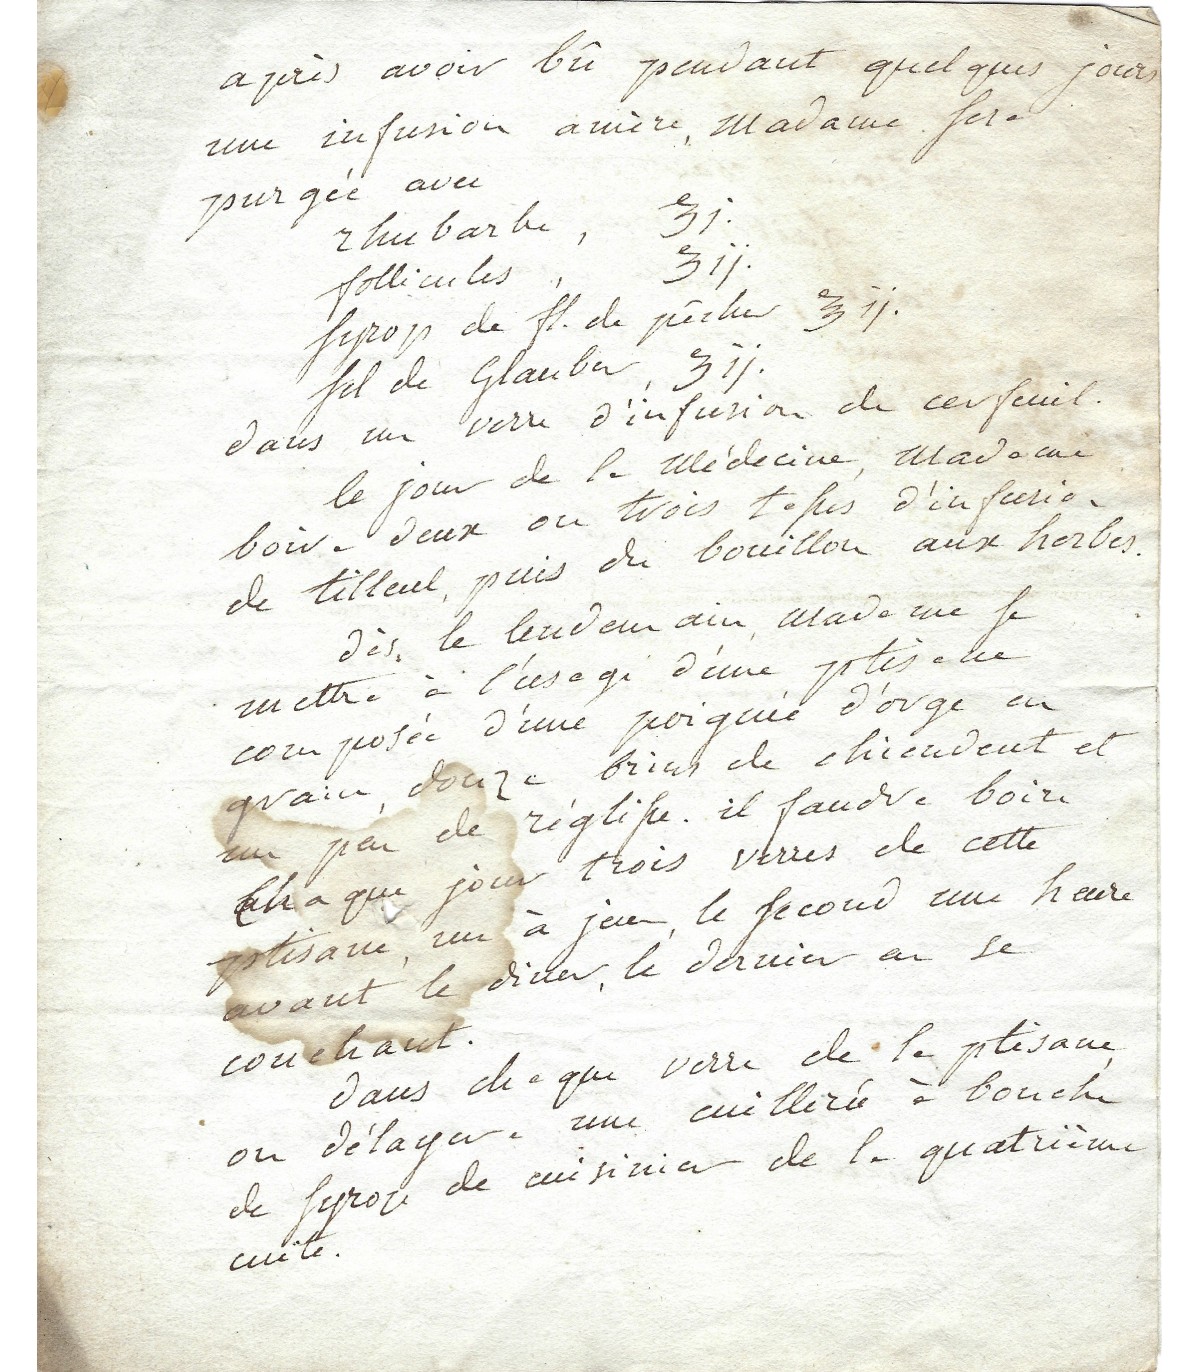 après avoir bû pendant quelques jours
une infusion amère, Madame sera
purgée avec
rhubarbe, ʒ j.
follicules, ʒ ij.
syrop de fl. de pêcher ℥ ij.
sel de Glauber, ʒ ij.
dans un verre d'infusion de cerfeuil.
le jour de la Médecine, Madame
boira deux ou trois tasses d'infusion
de tilleul, puis du bouillon aux herbes.
dès, le lendemain, Madame se
mettra à l'usage d'une ptisane
composée d'une poignée d'orge en
grain, douze brins de chiendent et
un peu de réglisse. il faudra boire
chaque jour trois verres de cette
ptisane, un à jeun, le second une heure
avant le diner, le dernier en se
couchant.
dans chaque verre de la ptisane,
on délayera une cuillerée à bouche
de syrop de cuisinier de la quatrième
cuite.